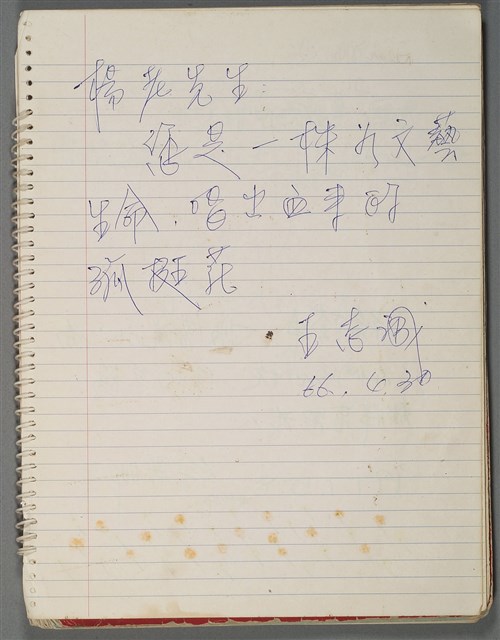 楊老先生:
您是一株為文藝
生命.唱出血來的
孤挺花
王志
66.4.30